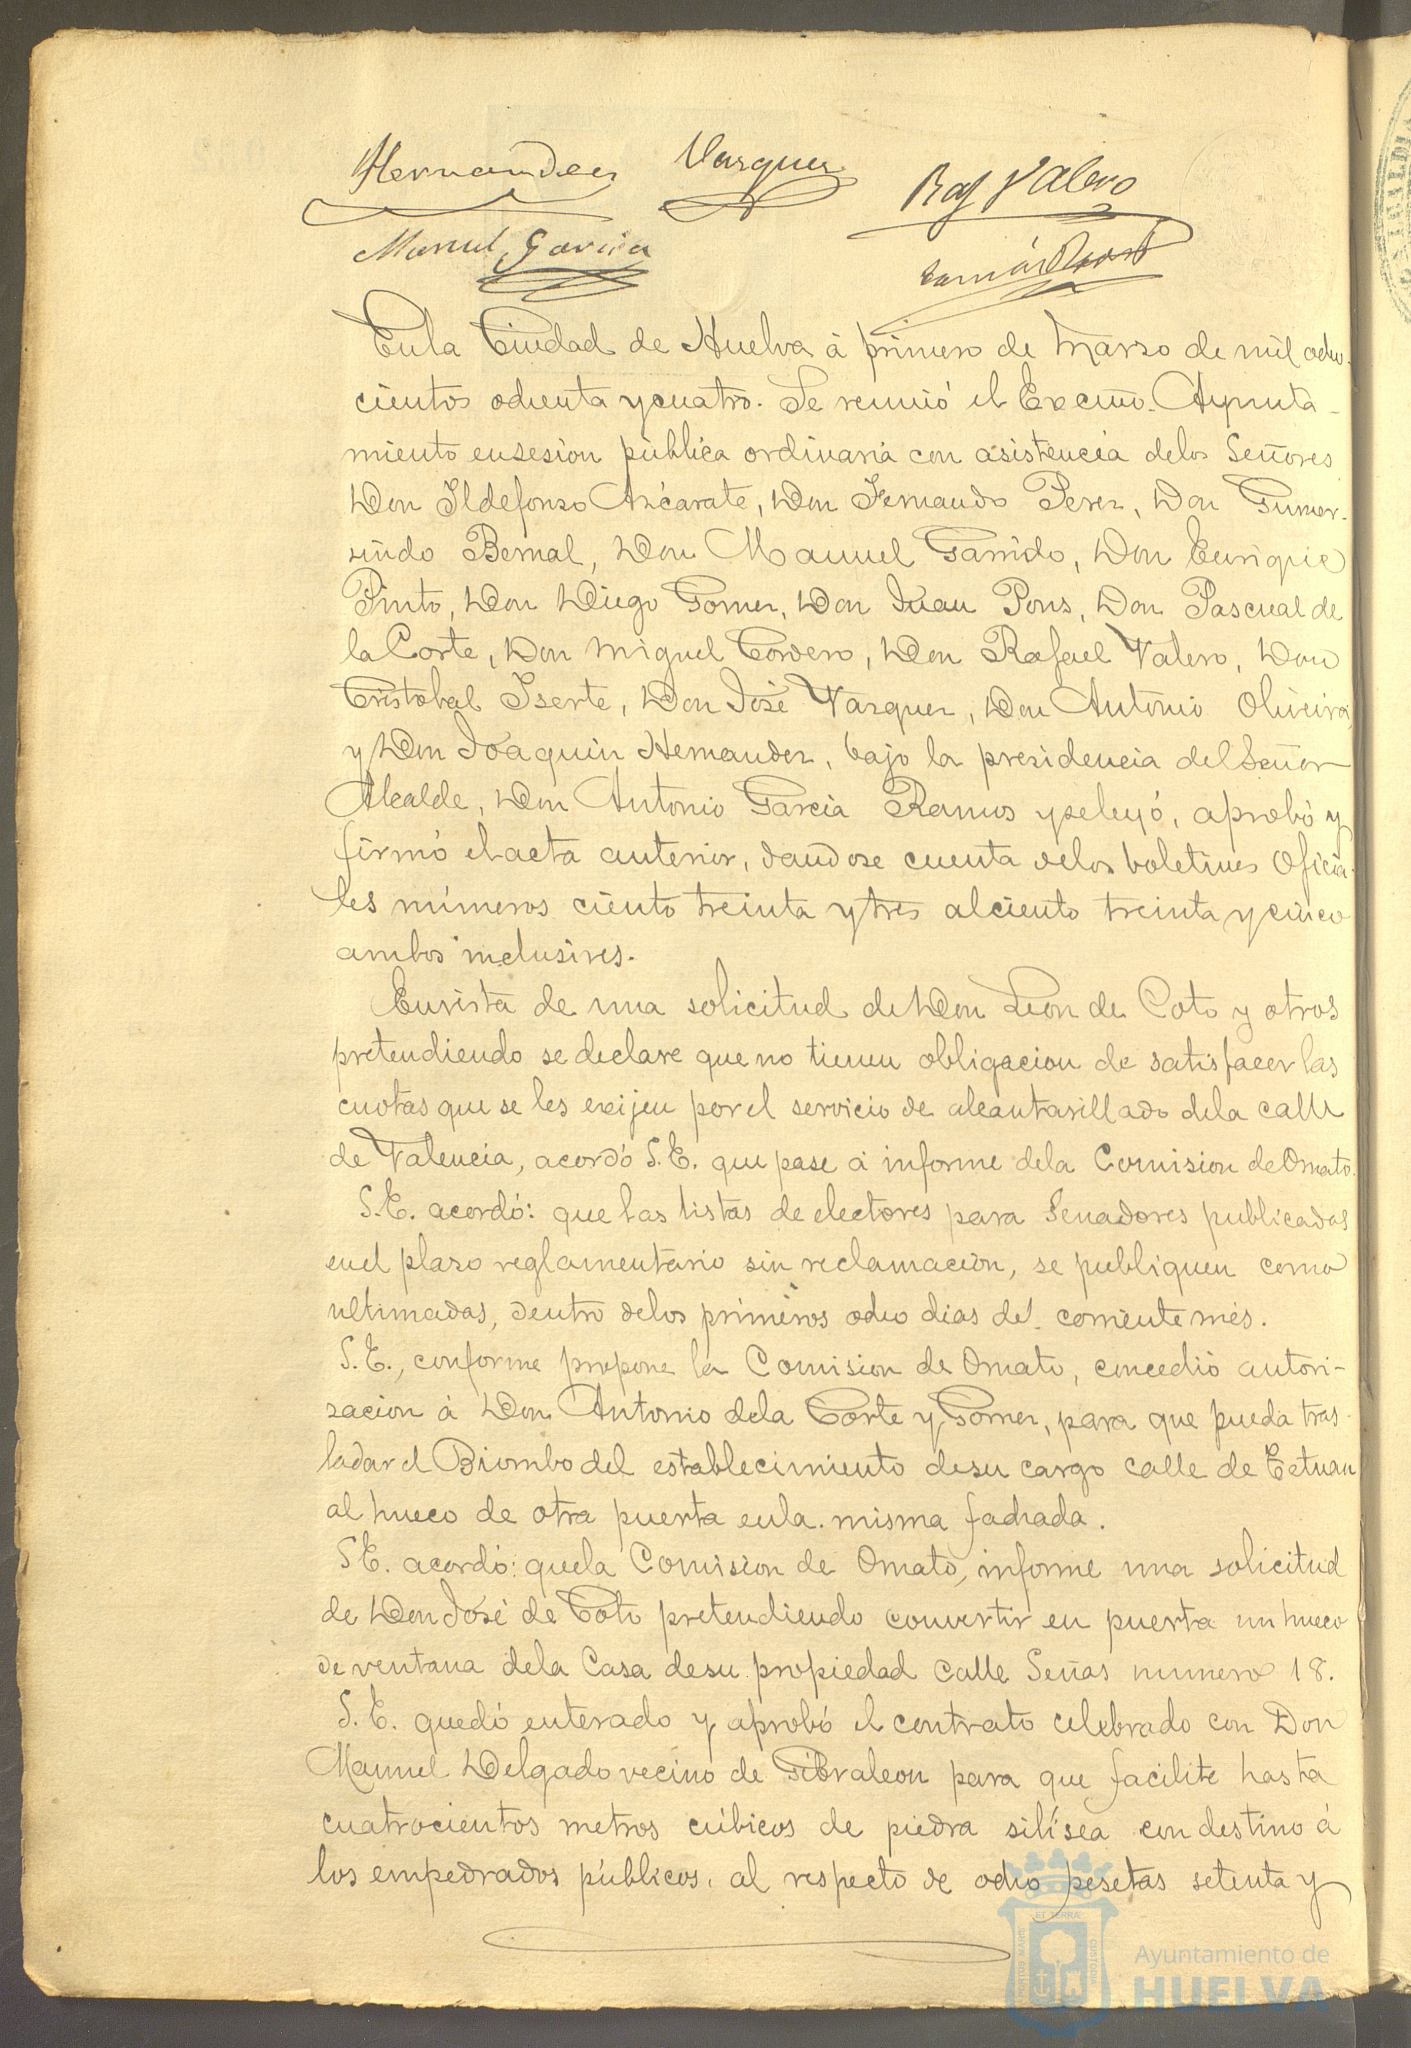 Hernandez Vazquez Raf Valero
Manuel Garcia
En la Ciudad de Huelva á primero de Marzo de mil ocho-
cientos ochenta y cuatro. Se reunió el Excmo. Ayunta-
miento en sesion pública ordinaria con asistencia de los Señores
Don Ildefonso Azcárate, Don Fernando Perez, Don Gumer-
sindo Bernal, Don Manuel Garrido, Don Enrique
Pinto, Don Diego Gomez, Don Juan Pons, Don Pascual de
la Corte, Don Miguel Cordero, Don Rafael Valero, Don
Cristobal Iserte, Don José Vazquez, Don Antonio Oliveira,
y Don Joaquin Hernandez, bajo la presidencia del Señor
Alcalde, Don Antonio Garcia Ramos y se leyó, aprobó y
firmó el acta anterior, dandose cuenta de los boletines Oficia-
les números ciento treinta y tres al ciento treinta y cinco
ambos inclusives.
En vista de una solicitud de Don Leon de Coto y otros
pretendiendo se declare que no tienen obligacion de satisfacer las
cuotas que se les exijen por el servicio de alcantarillado de la calle
de Valencia, acordó S.E. que pase á informe de la Comision de Ornato.
S.E. acordó: que las listas de electores para Senadores publicadas
en el plazo reglamentario sin reclamacion, se publiquen como
ultimadas, dentro de los primeros ocho dias del corriente més.
S.E., conforme propone la Comision de Ornato, concedió autori-
zacion á Don Antonio de la Corte y Gomez, para que pueda tras-
ladar el Biombo del establecimiento de su cargo calle de Tetuan
al hueco de otra puerta en la misma fachada.
S.E. acordó: que la Comision de Ornato, informe una solicitud
de Don José de Coto pretendiendo convertir en puerta un hueco
de ventana de la Casa de su propiedad calle Señas numero 18.
S.E. quedó enterado y aprobó el contrato celebrado con Don
Manuel Delgado vecino de Gibraleon para que facilite hasta
cuatrocientos metros cúbicos de piedra silísea con destino á
los empedrados públicos, al respecto de ocho pesetas setenta y
Ayuntamiento de
HUELVA